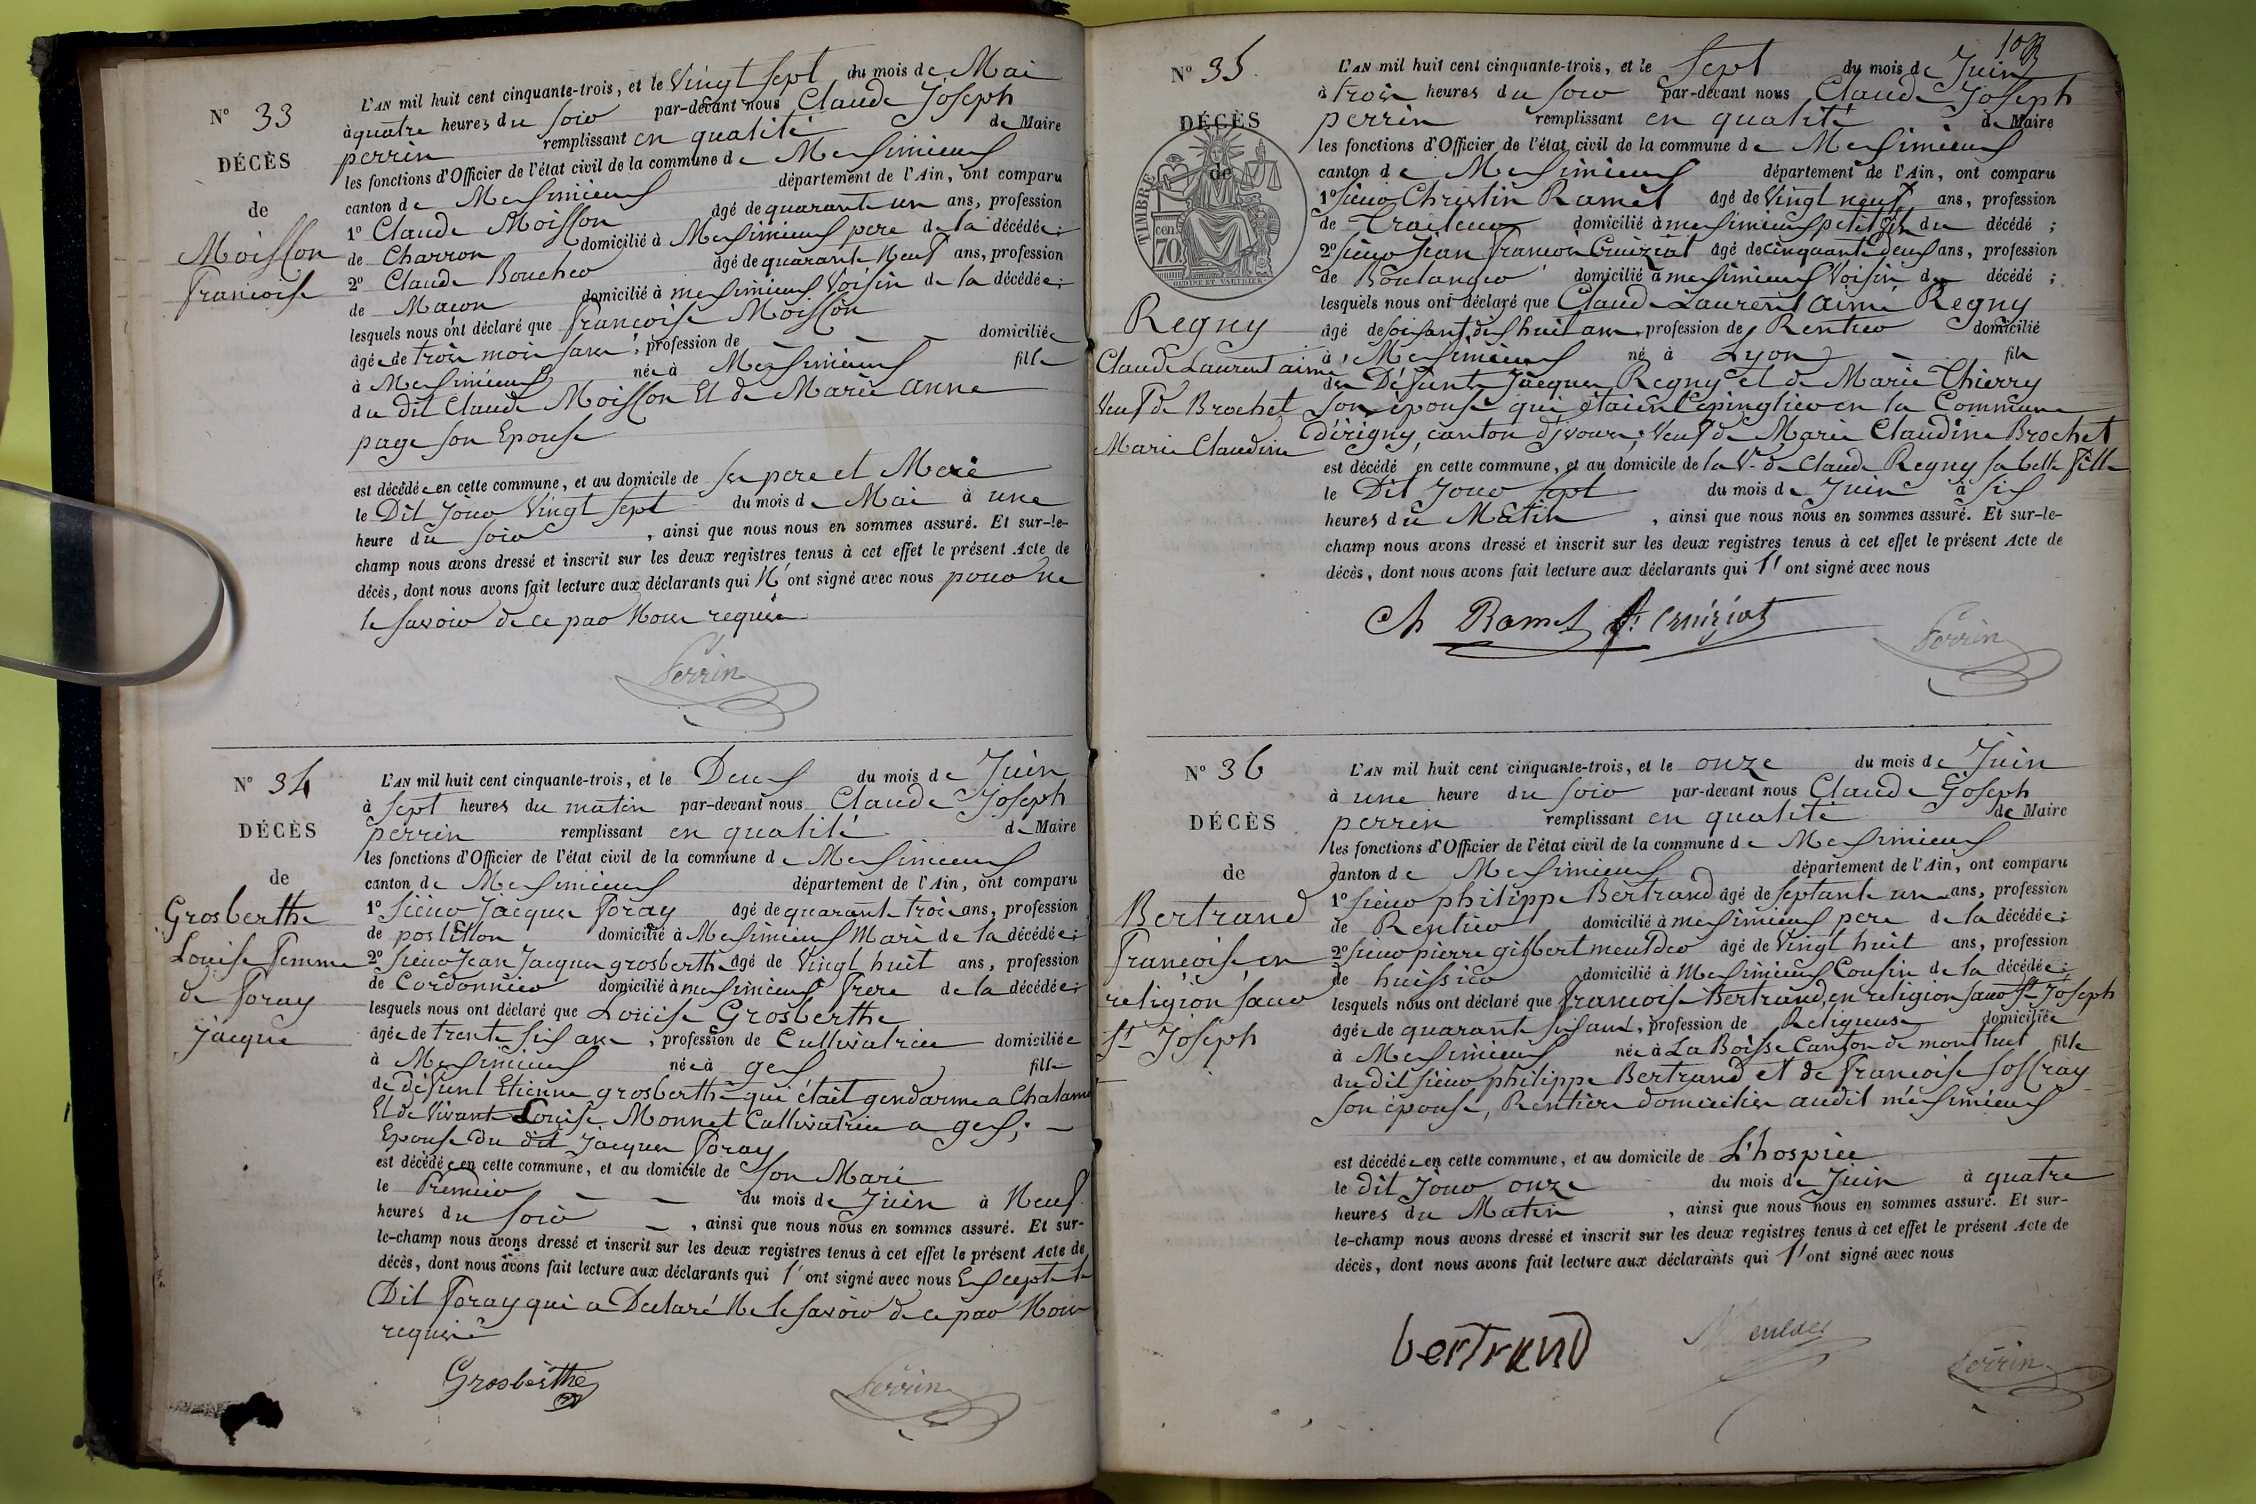 N° 33
DÉCÈS
de
Moisson
Francoise
L'AN mil huit cent cinquante-trois, et le Vingt sept du mois de Mai
à quatre heures du soir par-devant nous Claude Joseph
perrin remplissant en qualité de Maire
les fonctions d'Officier de l'état civil de la commune de Meximieux
canton de Meximieux département de l'Ain, ont comparu
1° Claude Moisson âgé de quarante un ans, profession
de Charron domicilié à Meximieux pere de la décédée;
2° Claude Boucher âgé de quarante Neuf ans, profession
de Macon domicilié à meximieux Voisin de la décédée;
lesquels nous ont déclaré que francoise Moisson
âgée de trois mois sans, profession de — — — domiciliée
à Meximieux née à Meximieux fille
du dit Claude Moisson Et de Marie anne
page son Epouse
est décédée en cette commune, et au domicile de ses pere et Mere
le Dit Jour Vingt sept du mois de Mai à une
heure du soir, ainsi que nous nous en sommes assuré. Et sur-le-
champ nous avons dressé et inscrit sur les deux registres tenus à cet effet le présent Acte de
décès, dont nous avons fait lecture aux déclarants qui N'ont signé avec nous pour ne
le savoir de ce par Nous requis
Perrin
N° 34
DÉCÈS
de
Grosberthe
Louise femme
de foray
jacque
L'AN mil huit cent cinquante-trois, et le Deux du mois de Juin
à sept heures du matin par-devant nous Claude Joseph
perrin remplissant en qualité de Maire
les fonctions d'Officier de l'état civil de la commune de Meximieux
canton de Meximieux département de l'Ain, ont comparu
1° Sieur Jacques foray âgé de quarante trois ans, profession
de postillon domicilié à Meximieux Mari de la décédée;
2° Sieur Jean Jacques grosberthe âgé de Vingt huit ans, profession
de Cordonnier domicilié à meximieux frere de la décédée;
lesquels nous ont déclaré que Louise Grosberthe
âgée de trente six ans, profession de Cultivatrice domiciliée
à Meximieux née à gex fille
de défunt Etienne grosberthe qui était gendarme a Chalamo
Et de Vivante Louise Monnet Cultivatrice a gex; —
Epouse du dit Jacques foray
est décédée en cette commune, et au domicile de son Mari
le Premier — — du mois de Juin à Neuf
heures du soir —, ainsi que nous nous en sommes assuré. Et sur-
le-champ nous avons dressé et inscrit sur les deux registres tenus à cet effet le présent Acte de
décès, dont nous avons fait lecture aux déclarants qui l'ont signé avec nous Excepté le
Dit foray qui a Déclaré Ne le savoir de ce par Nous
requis
Grosberthe
Perrin
N° 35
DÉCÈS
de
TIMBRE
70 cen.
Regny
Claude Laurent aimé
Veuf de Brochet
Marie Claudine
L'AN mil huit cent cinquante-trois, et le Sept du mois de Juin
à trois heures du soir par-devant nous Claude Joseph
perrin remplissant en qualité de Maire
les fonctions d'Officier de l'état civil de la commune de Meximieux
canton de Meximieux département de l'Ain, ont comparu
1° Sieur Christin Ramel âgé de Vingt neuf ans, profession
de Traiteur domicilié à meximieux petit fils du décédé;
2° Sieur Jean francois Cruiziat âgé de cinquante deux ans, profession
de Boulanger domicilié à meximieux Voisin du décédé;
lesquels nous ont déclaré que Claude Laurent aimé Regny
âgé de soixante dix huit ans, profession de Rentier domicilié
à Meximieux né à Lyon fils
des Défunts Jacques Regny et de Marie Thierry
son épouse qui étaient épinglier en la Commune
d'érigny, canton d'jvour; Veuf de Marie Claudine Brochet
est décédé en cette commune, et au domicile de la Ve de Claude Regny sa belle fille
le Dit Jour sept du mois de Juin à six
heures du Matin, ainsi que nous nous en sommes assuré. Et sur-le-
champ nous avons dressé et inscrit sur les deux registres tenus à cet effet le présent Acte de
décès, dont nous avons fait lecture aux déclarants qui l'ont signé avec nous
Ch Ramel f. Cruiziat
Perrin
N° 36
DÉCÈS
de
Bertrand
françoise en
religion sœur
St Joseph
L'AN mil huit cent cinquante-trois, et le onze du mois de Juin
à une heure du soir par-devant nous Claude Joseph
perren remplissant en qualité de Maire
les fonctions d'Officier de l'état civil de la commune de Meximieux
canton de Meximieux département de l'Ain, ont comparu
1° Sieur philippe Bertrand âgé de septante un ans, profession
de Rentier domicilié à meximieux pere de la décédée;
2° Sieur pierre gilbert meulder âgé de Vingt huit ans, profession
de huissier domicilié à Meximieux Cousin de la décédée;
lesquels nous ont déclaré que francoise Bertrand, en religion sœur St Joseph
âgée de quarante six ans, profession de Religieuse domiciliée
à Meximieux née à La Boisse Canton de montluel fille
du dit Sieur philippe Bertrand et de francoise
son épouse, Rentiers domiciliés audit méximieux
est décédée en cette commune, et au domicile de L'hospice
le dit Jour onze du mois de Juin à quatre
heures du Matin, ainsi que nous nous en sommes assuré. Et sur-
le-champ nous avons dressé et inscrit sur les deux registres tenus à cet effet le présent Acte de
décès, dont nous avons fait lecture aux déclarants qui l'ont signé avec nous
bertrand
Meulder
Perrin